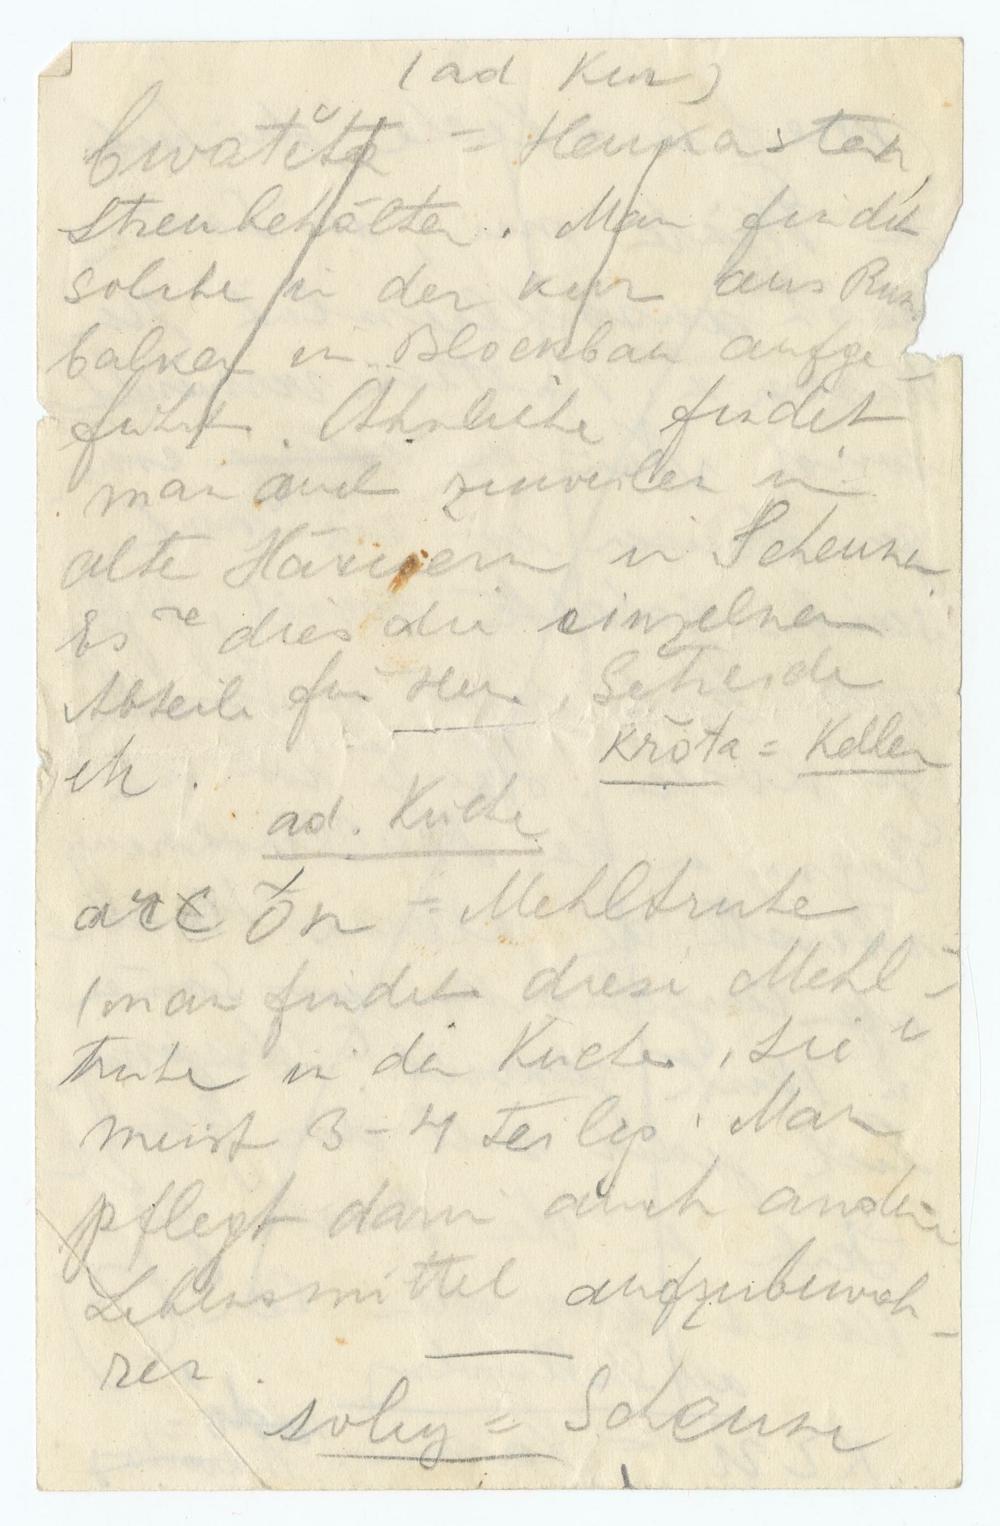 (ad Kur)
= Heukasten,
Streubehälter. Man findet
solche in der Kur aus Run
balken in Blockbau aufge-
führt. Ähnliche findet
man auch zuweilen in
alte Häusern in Scheunen.
Es dies die einzelnen
Abteile für Heu, Getreide
etc. krōta = Keller
ad. Küche
ōn = Mehltruhe
(man findet diese Mehl-
truhe in der Küche, sie
meist 3-4 teilig. Man
pflegt darin auch andere
Lebensmittel aufzubewah-
ren.
= Scheune